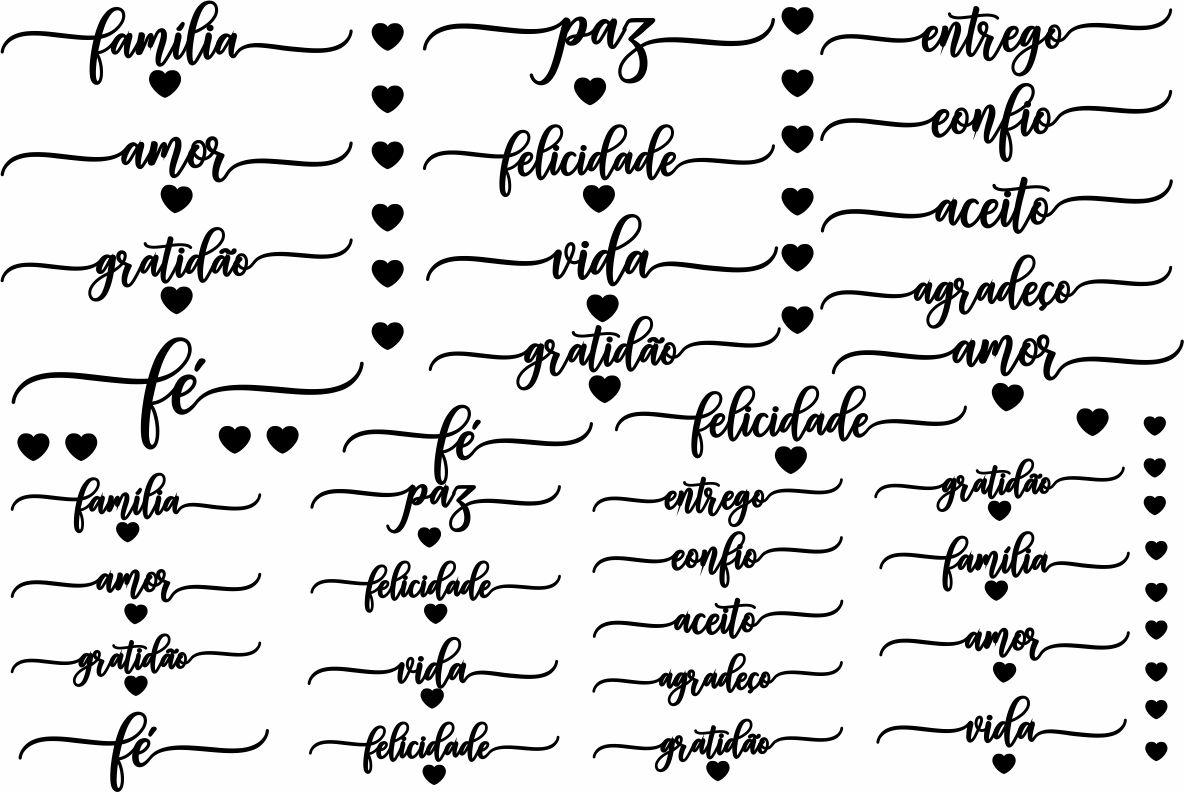 família
amor
gratidão
fé
paz
felicidade
vida
gratidão
entrego
confio
aceito
agradeço
amor
fé
felicidade
família
amor
gratidão
fé
paz
felicidade
vida
felicidade
entrego
confio
aceito
agradeço
gratidão
gratidão
família
amor
vida